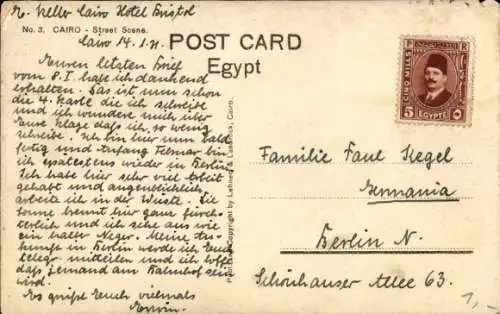 E. Keller Cairo Hotel Bristol
No. 3. CAIRO - Street Scene.
Cairo 14.1.31.
POST CARD
Egypt
Euren letzten Brief
vom 8.I. habe ich dankend
erhalten. Das ist nun schon
die 4. Karte die ich schreibe
und ich wundere mich über
Eure Klage daß ich so wenig
schreibe. Ich bin hier nun bald
fertig und Anfang Februar bin
ich spätestens wieder in Berlin.
Ich habe hier sehr viel Arbeit
gehabt und augenblicklich
arbeite ich in der Wüste. Die
Sonne brennt hier ganz fürch-
terlich und ich sehe aus wie
ein halber Neger. Meine An-
kunft in Berlin werde ich Euch
telegr. mitteilen und ich hoffe
daß jemand am Bahnhof sein
wird.
Es grüßt Euch vielmals
Erwin.
Copyright by Lehnert & Landrock, Cairo.
CINQ MILLS
5
EGYPTE
٥
Familie Paul Kegel
Germania
Berlin N.
Schönhauser Allee 63.
1,-